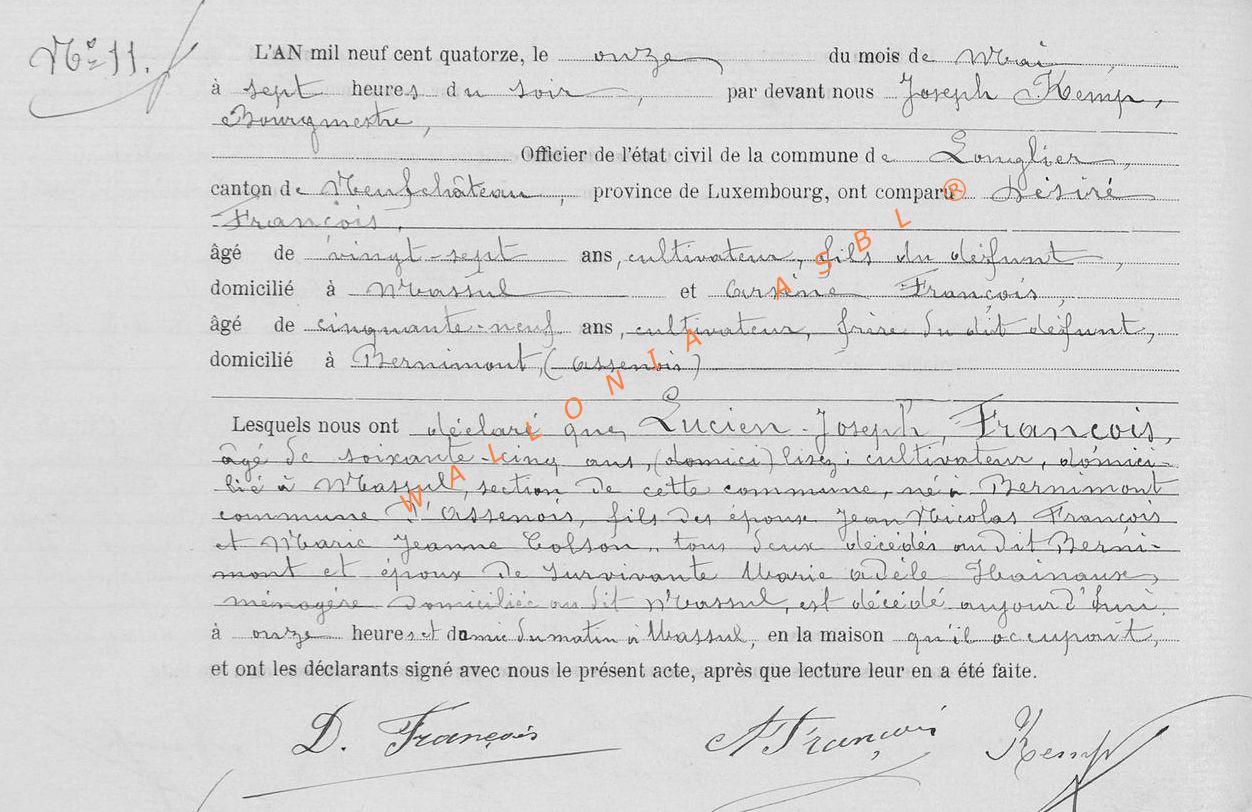 N° 11.
L'AN mil neuf cent quatorze, le onze du mois de Mai,
à sept heures du soir, par devant nous Joseph Kemp,
Bourgmestre,
Officier de l'état civil de la commune de Longlier,
canton de Neufchâteau, province de Luxembourg, ont comparu Désiré
François,
âgé de vingt-sept ans, cultivateur, fils du défunt,
domicilié à Massul et Arsène François,
âgé de cinquante-neuf ans, cultivateur, frère du dit défunt,
domicilié à Bernimont, (Assenois)
Lesquels nous ont déclaré que, Lucien-Joseph, François,
âgé de soixante-cinq ans, (domici) lisez: cultivateur, domici-
lié à Massul, section de cette commune, né à Bernimont
commune d'Assenois, fils des époux Jean Nicolas François
et Marie Jeanne Colson, tous deux décédés au dit Berni-
mont et époux de survivante Marie Adèle Hainaux,
ménagère domiciliée au dit Massul, est décédé aujourd'hui
à onze heures et demie du matin à Massul, en la maison qu'il occupait,
et ont les déclarants signé avec nous le présent acte, après que lecture leur en a été faite.
D. François A François Kemp
WALLONIA ASBL ®